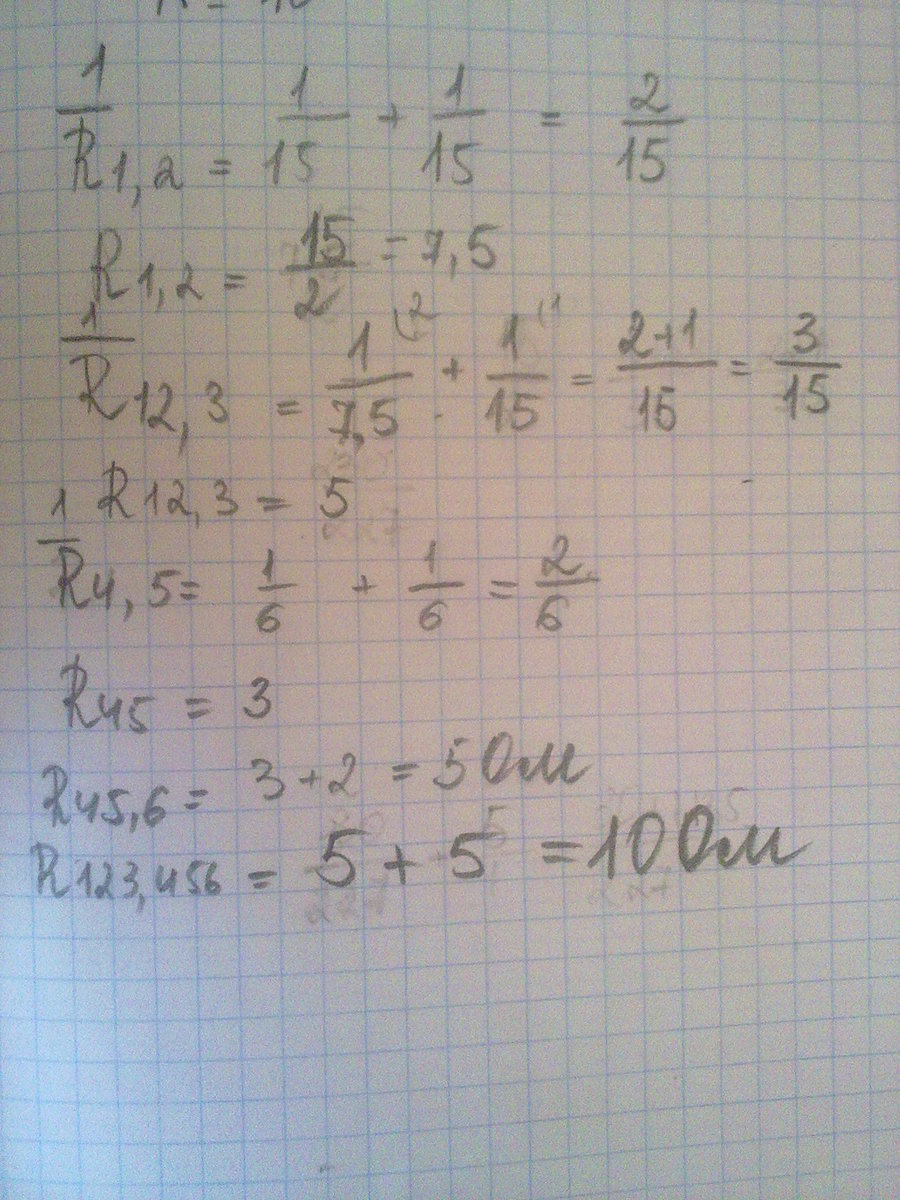 1/R1,2 = 1/15 + 1/15 = 2/15
R1,2 = 15/2 = 7,5
1/R12,3 = 1/7,5 (2 + 1/15 (1 = 2+1/15 = 3/15
R12,3 = 5
1/R4,5 = 1/6 + 1/6 = 2/6
R45 = 3
R45,6 = 3+2 = 5 Ом
R123,456 = 5 + 5 = 10 Ом